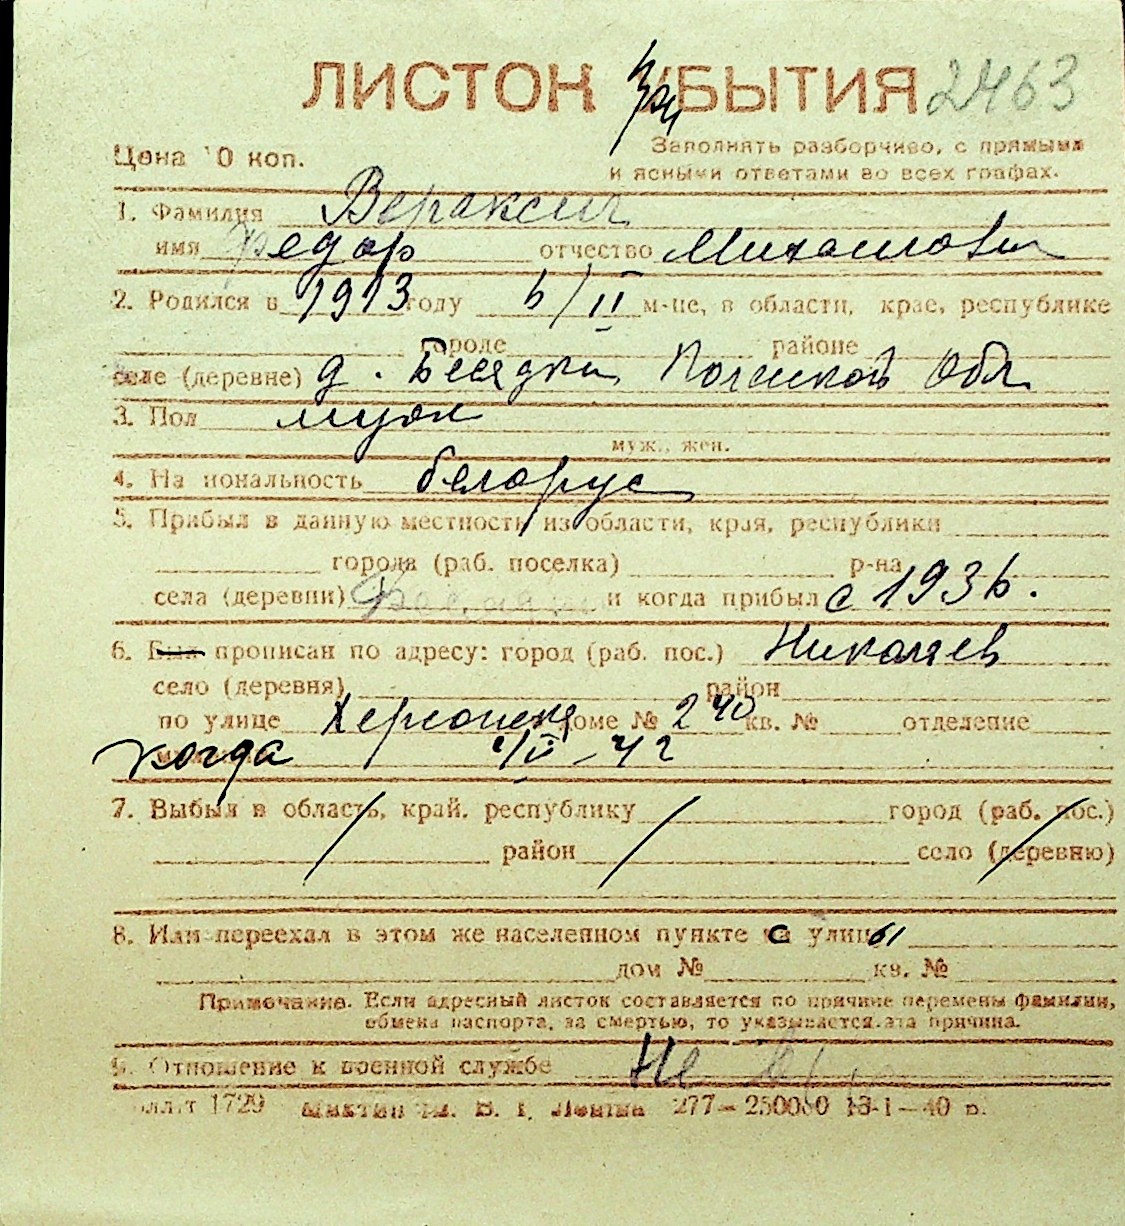 ЛИСТОК При БЫТИЯ 2463
Цена 10 коп. Заполнять разборчиво, с прямыми
и ясными ответами во всех графах.
1. Фамилия Вераксич
имя Федор отчество Михайлович
2. Родился в 1913 году 6/II м-це, в области, крае, республике
городе районе
селе (деревне) д. Беседки Полесской Обл
3. Пол муж
муж., жен.
4. Национальность белорус
5. Прибыл в данную местность из области, края, республики
города (раб. поселка) р-на
села (деревни) и когда прибыл с 1936.
6. Был прописан по адресу: город (раб. пос.) Николаев
село (деревня) район
по улице Херсонская доме № 240 кв. № отделение
когда
7. Выбыл в область, край, республику город (раб. пос.)
район село (деревню)
8. Или переехал в этом же населенном пункте с улицы
дом № кв. №
Примечание. Если адресный листок составляется по причине перемены фамилии,
обмена паспорта, за смертью, то указывается эта причина.
9. Отношение к военной службе Не
1729 им. В. І. Леніна 277—250000 13-1—40 р.